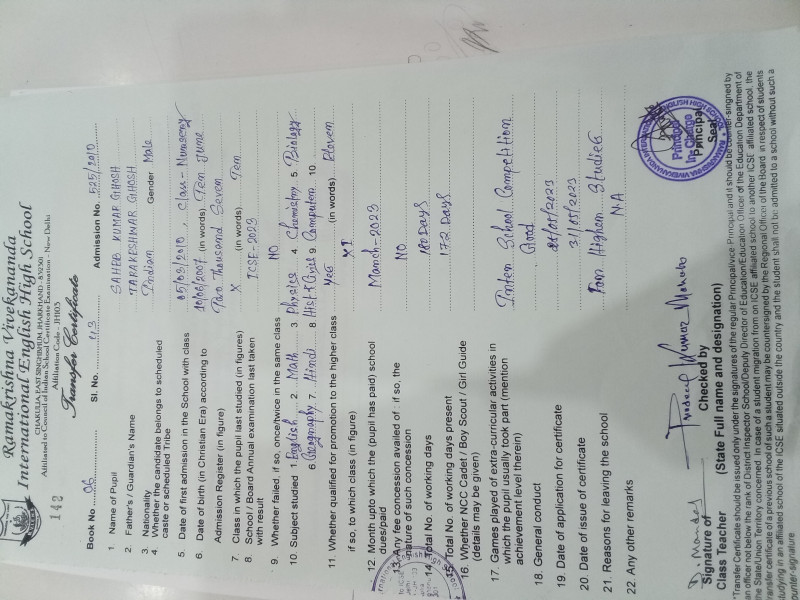 Ramakrishna Vivekananda
International English High School
CHAKULIA, EAST SINGHBHUM, JHARKHAND - 832301
Affiliated to Council of Indian School Certificate Examination - New Delhi
Affiliation Code - JH103
142
Transfer Certificate
Book No. 06 Sl. No. 113 Admission No. 525/2010
1. Name of Pupil SAHEB KUMAR GHOSH
2. Father's / Guardian's Name TARAKESHWAR GHOSH
3. Nationality Indian Gender Male
4. Whether the candidate belongs to scheduled
caste or scheduled Tribe
5. Date of first admission in the School with class 05/03/2010, Class-Nursery
6. Date of birth (in Christian Era) according to 10/06/2007 (in words) Ten June
Admission Register (in figure) Two Thousand Seven
7. Class in which the pupil last studied (in figures) X (in words) Ten
8. School / Board Annual examination last taken ICSE-2023
with result
9. Whether failed, if so, once/twice in the same class NO
10. Subject studied 1. English 2. Math 3. Physics 4. Chemistry 5. Biology
6. Geography 7. Hindi 8. Hist+Civics 9. Computer 10.
11 Whether qualified for promotion to the higher class Yes
if so, to which class (in figure) XI (in words) Eleven
12. Month upto which the (pupil has paid) school March-2023
dues/paid
13. Any fee concession availed of : if so, the NO
nature of such concession
14. Total No. of working days 180 Days
15. Total No. of working days present 172 Days
16. Whether NCC Cadet / Boy Scout / Girl Guide
(details may be given)
17. Games played of extra-curricular activities in Inter School Competition
which the pupil usually took part (mention
achievement level therein)
18. General conduct Good
19. Date of application for certificate /05/2023
20. Date of issue of certificate 31/05/2023
21. Reasons for leaving the school For Higher Studies
22. Any other remarks N.A
D. Mandal
Signature of
Class Teacher
Checked by
(State Full name and designation)
Principal
In Charge
Principal
Seal
*Transfer Certificate should be issued only under the signatures of the regular Principal/vice Principal and it should be counter-singned by
an officer not below the rank of District Inspector School/Deputy Director of Education/Education Officer of the Education Department of
the State/Union Territory concerned. In case of a student migration from on ICSE affiliated school to another ICSE affiliated school, the
transfer certificate of a previous school of such a student may be countersigned by the Regional Officer of the Board in respect of students
studying in an affiliated school of the ICSE situated outside the country and the student shall not be admitted to a school without such a
counter-signature